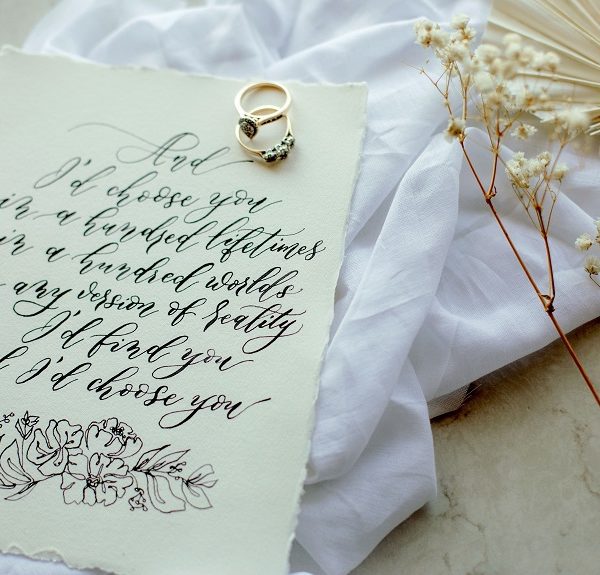 And
I'd choose you
in a hundred lifetimes
in a hundred worlds
any version of reality
I'd find you
I'd choose you